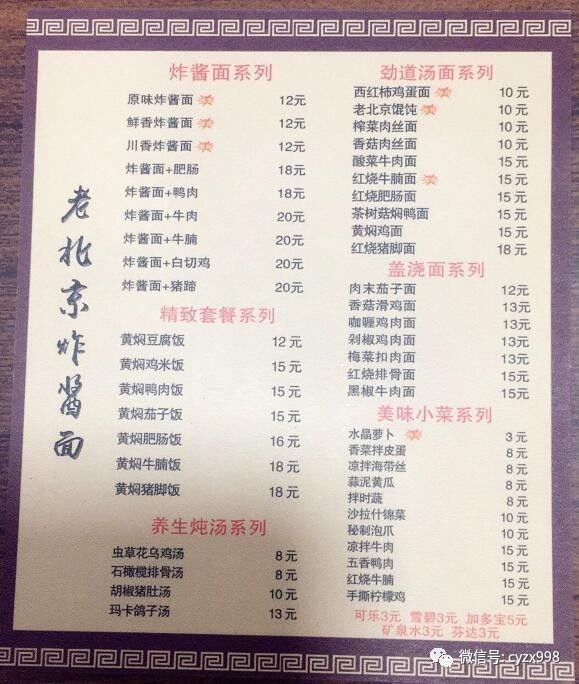 老北京炸酱面
炸酱面系列
原味炸酱面 12元
鲜香炸酱面 12元
川香炸酱面 12元
炸酱面+肥肠 18元
炸酱面+鸭肉 18元
炸酱面+牛肉 20元
炸酱面+牛腩 20元
炸酱面+白切鸡 20元
炸酱面+猪蹄 20元
精致套餐系列
黄焖豆腐饭 12元
黄焖鸡米饭 15元
黄焖鸭肉饭 15元
黄焖茄子饭 15元
黄焖肥肠饭 16元
黄焖牛腩饭 18元
黄焖猪脚饭 18元
养生炖汤系列
虫草花乌鸡汤 8元
石橄榄排骨汤 8元
胡椒猪肚汤 10元
玛卡鸽子汤 13元
劲道汤面系列
西红柿鸡蛋面 10元
老北京馄饨 10元
榨菜肉丝面 10元
香菇肉丝面 10元
酸菜牛肉面 15元
红烧牛腩面 15元
红烧肥肠面 15元
茶树菇焖鸭面 15元
黄焖鸡面 15元
红烧猪脚面 18元
盖浇面系列
肉末茄子面 12元
香菇滑鸡面 13元
咖喱鸡肉面 13元
剁椒鸡肉面 13元
梅菜扣肉面 13元
红烧排骨面 15元
黑椒牛肉面 15元
美味小菜系列
水晶萝卜 3元
香菜拌皮蛋 8元
凉拌海带丝 8元
蒜泥黄瓜 8元
拌时蔬 8元
沙拉什锦菜 10元
秘制泡爪 10元
凉拌牛肉 15元
五香鸭肉 15元
红烧牛腩 15元
手撕柠檬鸡 15元
可乐3元 雪碧3元 加多宝5元
矿泉水3元 芬达3元
微信号: cyzx998